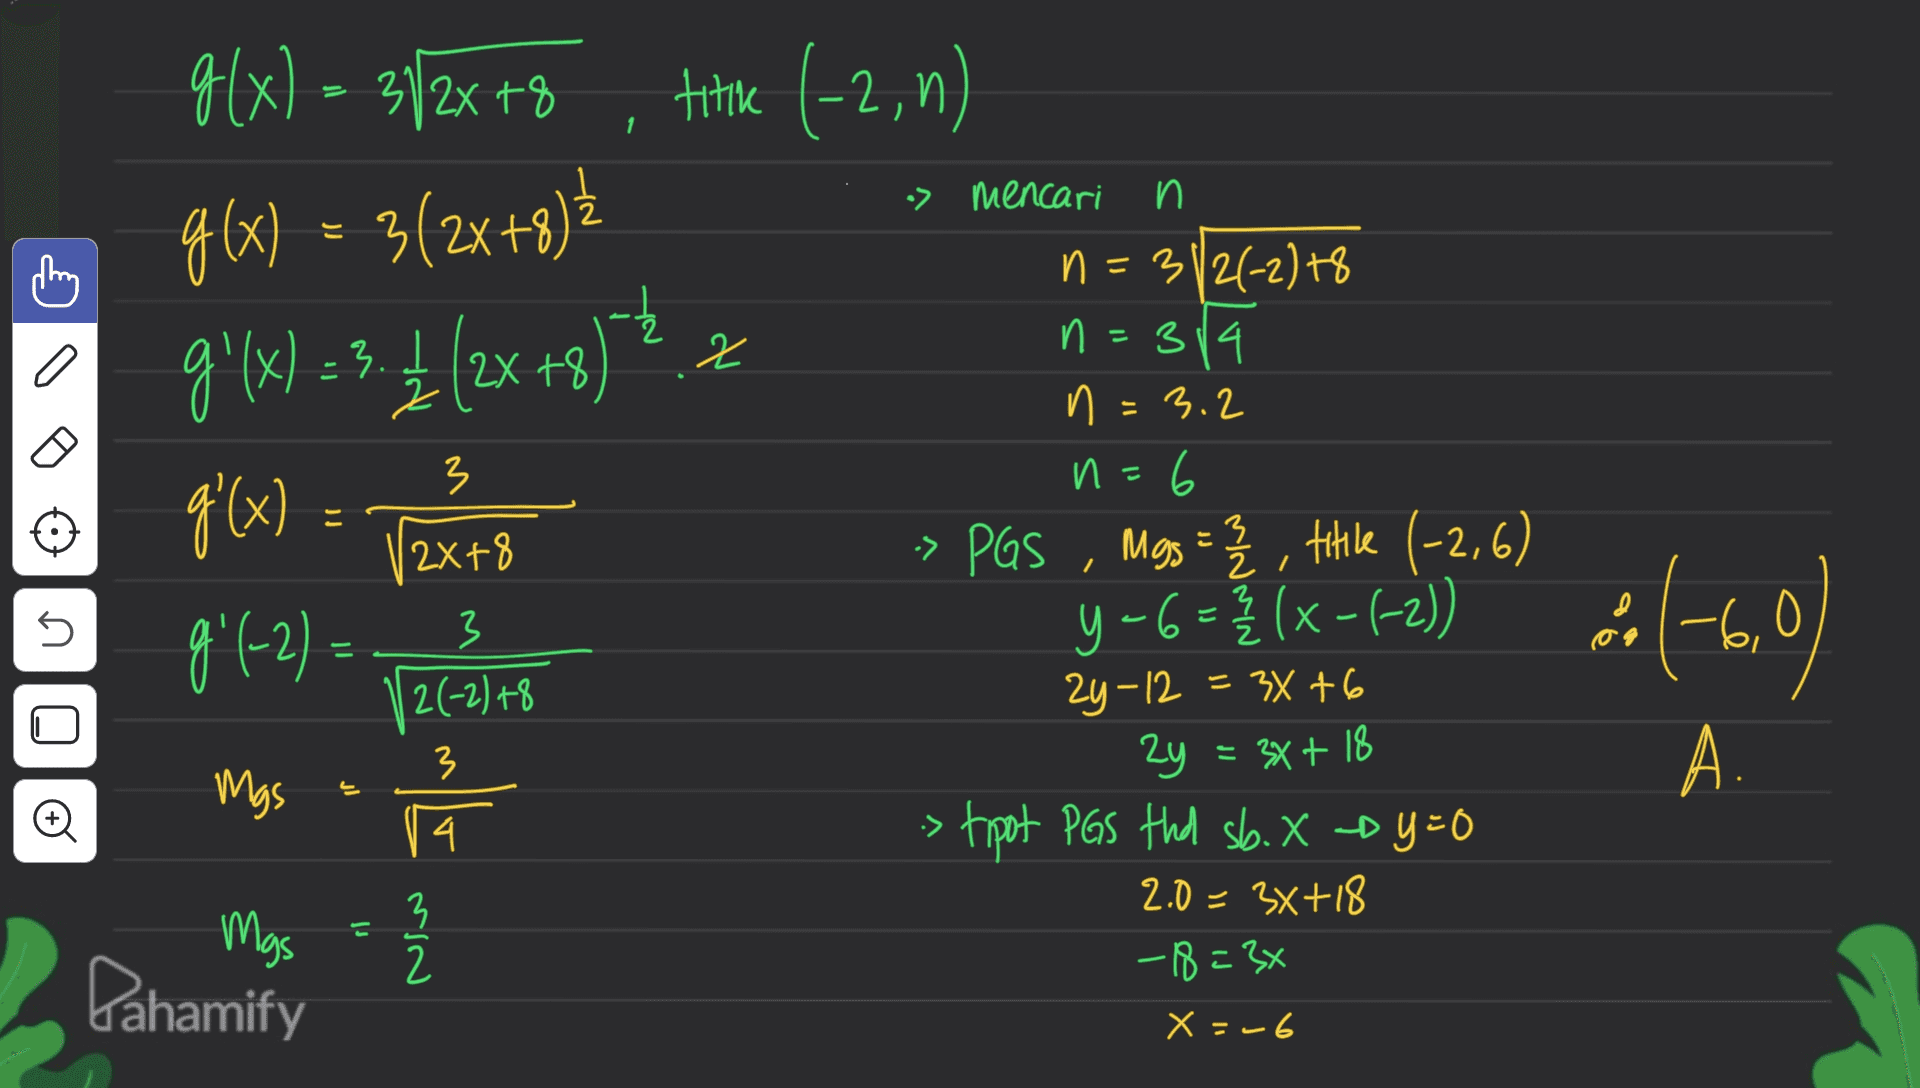 g(x) = 3√2x+8 , titik (-2,n)
g(x) = 3(2x+8)^½
g'(x) = 3. ½ (2x+8)^-½ . 2
g'(x) = 3/√2x+8
g'(-2) = 3/√2(-2)+8
Mgs = 3/√4
Mgs = 3/2
-> mencari n
n = 3√2(-2)+8
n = 3√4
n = 3.2
n = 6
-> PGS , Mgs = 3/2 , titik (-2,6)
y-6 = 3/2 (x-(-2))
2y-12 = 3x+6
2y = 3x+18
-> tipot PGS thd sb. X → y=0
2.0 = 3x+18
-18 = 3x
x = -6
∴ (-6,0)
A.
Pahamify